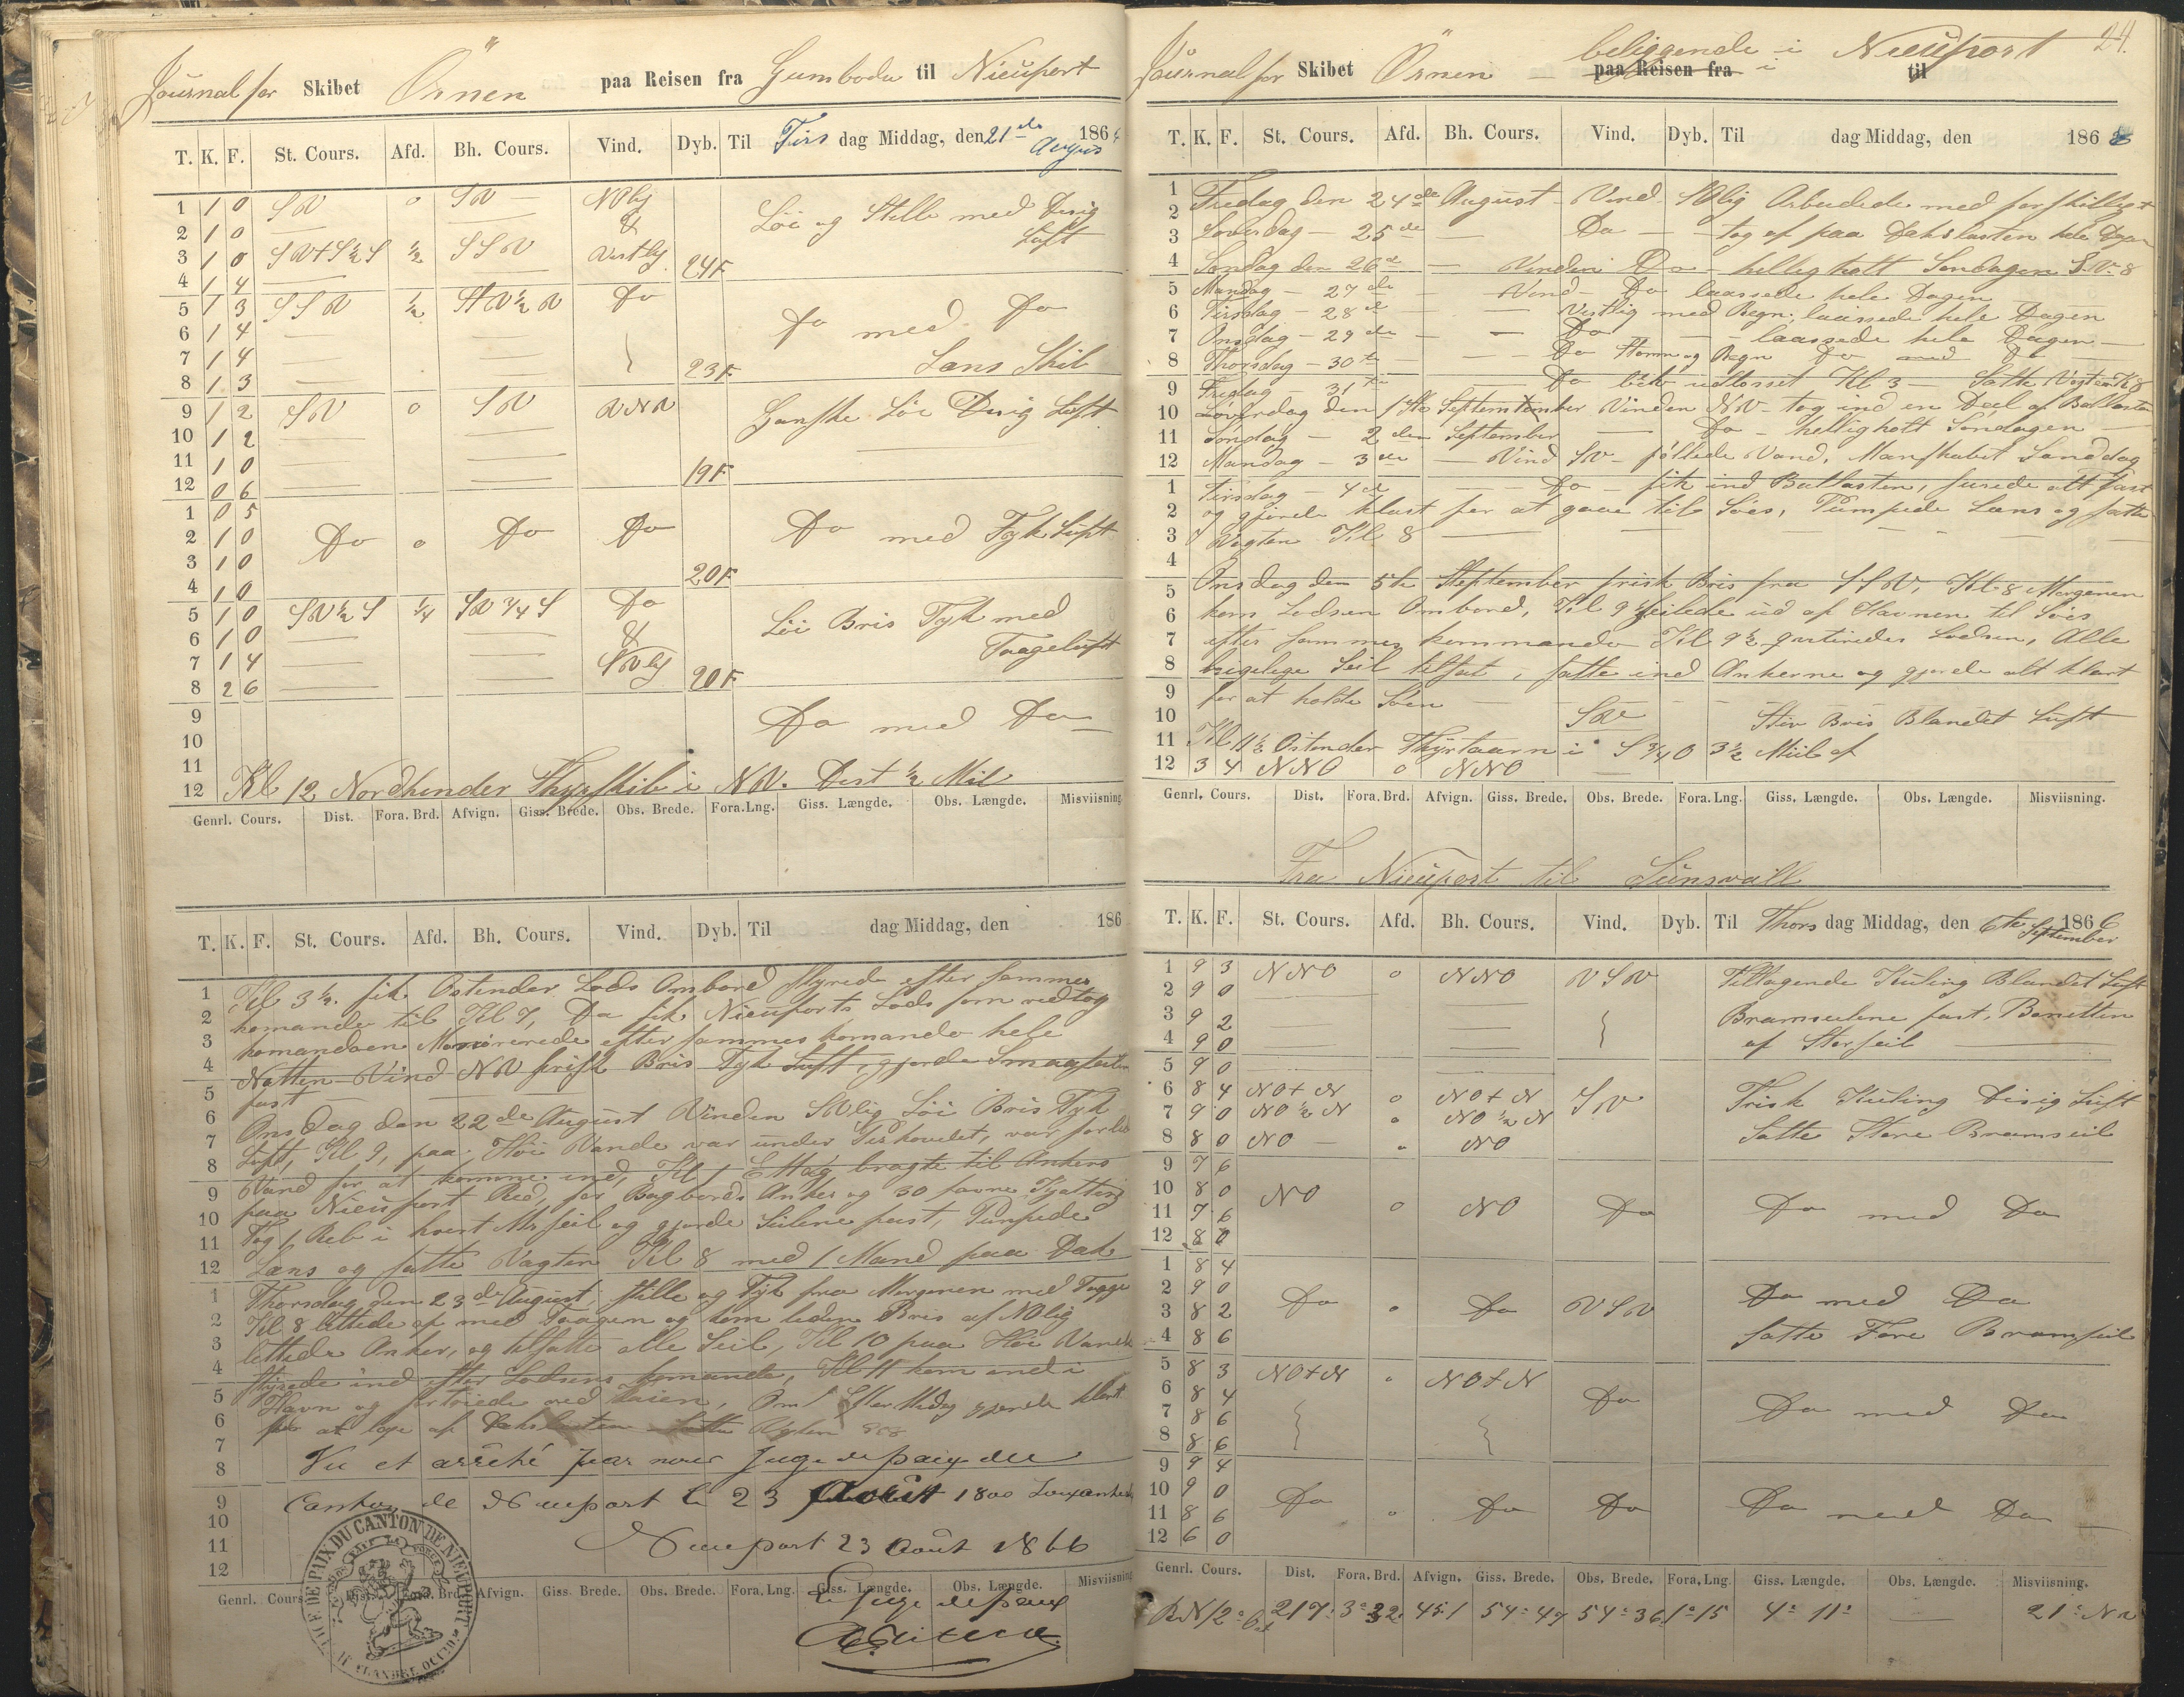 Journal for Skibet Örnen paa Reisen fra Gumboda til Nieuport
T. K. F. St. Cours. Afd. Bh. Cours. Vind. Dyb. Til Tirs dag Middag, den 21de August 186
1 1 0 SW o SW
2 1 0 Löi og Stille med Disig
3 1 0 1/2 SSW Vestlig 24 F Luft
4 1 4
5 1 3 SSW 1/2 Do
6 1 4 Do med Do
7 1 4 Læns Skib
8 1 3 23 F
9 1 2 SW o SW WNW Ganske Löi Disig Luft
10 1 2
11 1 0 19 F
12 0 6
1 0 5
2 1 0 Do o Do Do Do med Tyk Luft
3 1 0 20 F
4 1 0
5 1 0 SW 1/2 S 1/4 SW 3/4 S Do Löi Bris Tyk med
6 1 0 & Taageluft
7 1 4
8 2 6 20 F
9 Do med Do
10
11
12 Kl 12 Nordhinder Fyrskib i NW. Dist 1/2 Mil
Genrl. Cours. Dist. Fora. Brd. Afvign. Giss. Brede. Obs. Brede. Fora. Lng. Giss. Længde. Obs. Længde. Misviisning.
T. K. F. St. Cours. Afd. Bh. Cours. Vind. Dyb. Til dag Middag, den 186
1 Kl 3 1/2 fik Ostender Lods Ombord styrede efter sammes
2 komando til Kl 7, Da fik Nieuports Lods som vedtog
3 komandoen efter sammes komando hele
4 Natten Vind NW frisk Bris Tyk Luft, gjorde Smaaseilene
5 fast
6 Onsdag den 22de August Vinden SWlig Löi Bris Tyk
7 Luft, Kl 9, paa Höi Vande var under Pirhovedet, var for lidt
8 Vand for at komme ind, Kl 1 Ettag bragte til Ankers
9 paa Nieuport Red, for Bagbords Anker og 30 favne Kjætting
10 Tog 1 Reb i hvert Mrs seil og gjorde Seilene fast, Pumpede
11 Læns og satte Vagten Kl 8 med 1 Mand paa Dæk
12
1 Thorsdag den 23de August, stille og Tyk fra Morgenen med Tagge
2 Kl 8 lettede af med Taagen og kom liden Bris af NOlig
3 lettede Anker, og tilsatte alle Seil, Kl 10 paa Höi Vande
4 styrede ind efter Lodsens komando, Kl 11 kom ind i
5 Havn og fortöiede ved Kaien, Om Efter Midag gjorde klart
6 for at lose af Dækslasten satte Vagten
7 Vu et arrêté par nous Juge de paix du
8
9 Canton de Nieuport le 23 Août
10
11 Nieuport 23 Août 1866
12
JUGE DE PAIX DU CANTON DE NIEUPORT
Genrl. Cours. Dist. Fora. Brd. Afvign. Giss. Brede. Obs. Brede. Fora. Lng. Giss. Længde. Obs. Længde. Misviisning.
Le Juge de paix
24.
Journal for Skibet Örnen – beliggende i Nieuport
paa Reisen fra til
T. K. F. St. Cours. Afd. Bh. Cours. Vind. Dyb. Til dag Middag, den 186
1 Fredag den 24de August Vind SWlig Arbeidede med forskilligt
2
3 Loverdag – 25de – Do – tog af paa Dækslasten hele Dagen
4 Sondag den 26d – Vinden Do – hellig holt Söndagen
5 Mandag – 27de – Vind Do laassede hele Dagen
6 Tirsdag – 28d – Vestlig med Regn laassede hele Dagen
7 Onsdag – 29de – Do – laassede hele Dagen
8 Thorsdag – 30te – Do Storm og Regn Do med Do
9 Fredag – 31te – Do blev udlosset Kl 3 – Satte Vagten Kl 8
10 Loverdag den 1ste September Vinden NW – tog ind en Deel af Ballasten
11 Söndag – 2den September – Do – hellig holt Söndagen
12 Mandag – 3de – Vind SW – föllede Vand, Manskabet Landdag
1 Tirsdag – 4de – Do – fik ind Ballasten, surede alt fast
2 og gjorde klart for at gaae til Söes, Pumpede Læns og satte
3 Vagten Kl 8
4
5 Onsdag den 5te September frisk Bris fra SSW, Kl 8 Morgenen
6 kom Lodsen Ombord, Kl 9 Seilede ud af Havnen til Söes
7 efter sammes kommando Kl 9 1/2 qvitteredes Lodsen, Alle
8 Seil tilsat, satte ind Ankerne og gjorde alt klart
9 for at holde Söen
10 SW Stiv Bris Blandet Luft
11 Kl 11 1/2 Ostender Fyrtaarn i S 3/4 O 3 1/2 Miil af
12 3 4 NNO o NNO
Genrl. Cours. Dist. Fora. Brd. Afvign. Giss. Brede. Obs. Brede. Fora. Lng. Giss. Længde. Obs. Længde. Misviisning.
Fra Nieuport til Sunsvall
T. K. F. St. Cours. Afd. Bh. Cours. Vind. Dyb. Til Thors dag Middag, den 6te September 1866
1 9 3 NNO o NNO WSW Tiltagende Kuling Blandet Luft
2 9 0
3 9 2 Bramseilene fast, Bonetten
4 9 0 af Storseil
5 9 0
6 8 4 NO t N o NO t N SW Frisk Kuling Disig Luft
7 9 0 NO 1/2 N o NO 1/2 N
8 8 0 NO – o NO Satte Store Bramseil
9 7 6
10 8 0 NO o NO Do Do med Do
11 7 6
12 8 0
1 8 4
2 9 0 Do o Do WSW Do med Do
3 8 2
4 8 6 satte Fore Bramseil
5 8 3 NO t N o NO t N
6 8 4 Do Do med Do
7 8 6
8 8 6
9 9 4
10 9 0 Do o Do Do Do med Do
11 8 6
12 6 0
Genrl. Cours. Dist. Fora. Brd. Afvign. Giss. Brede. Obs. Brede. Fora. Lng. Giss. Længde. Obs. Længde. Misviisning.
217 3° 32 451 54° 47 54° 36 1° 15 4° 11 21°